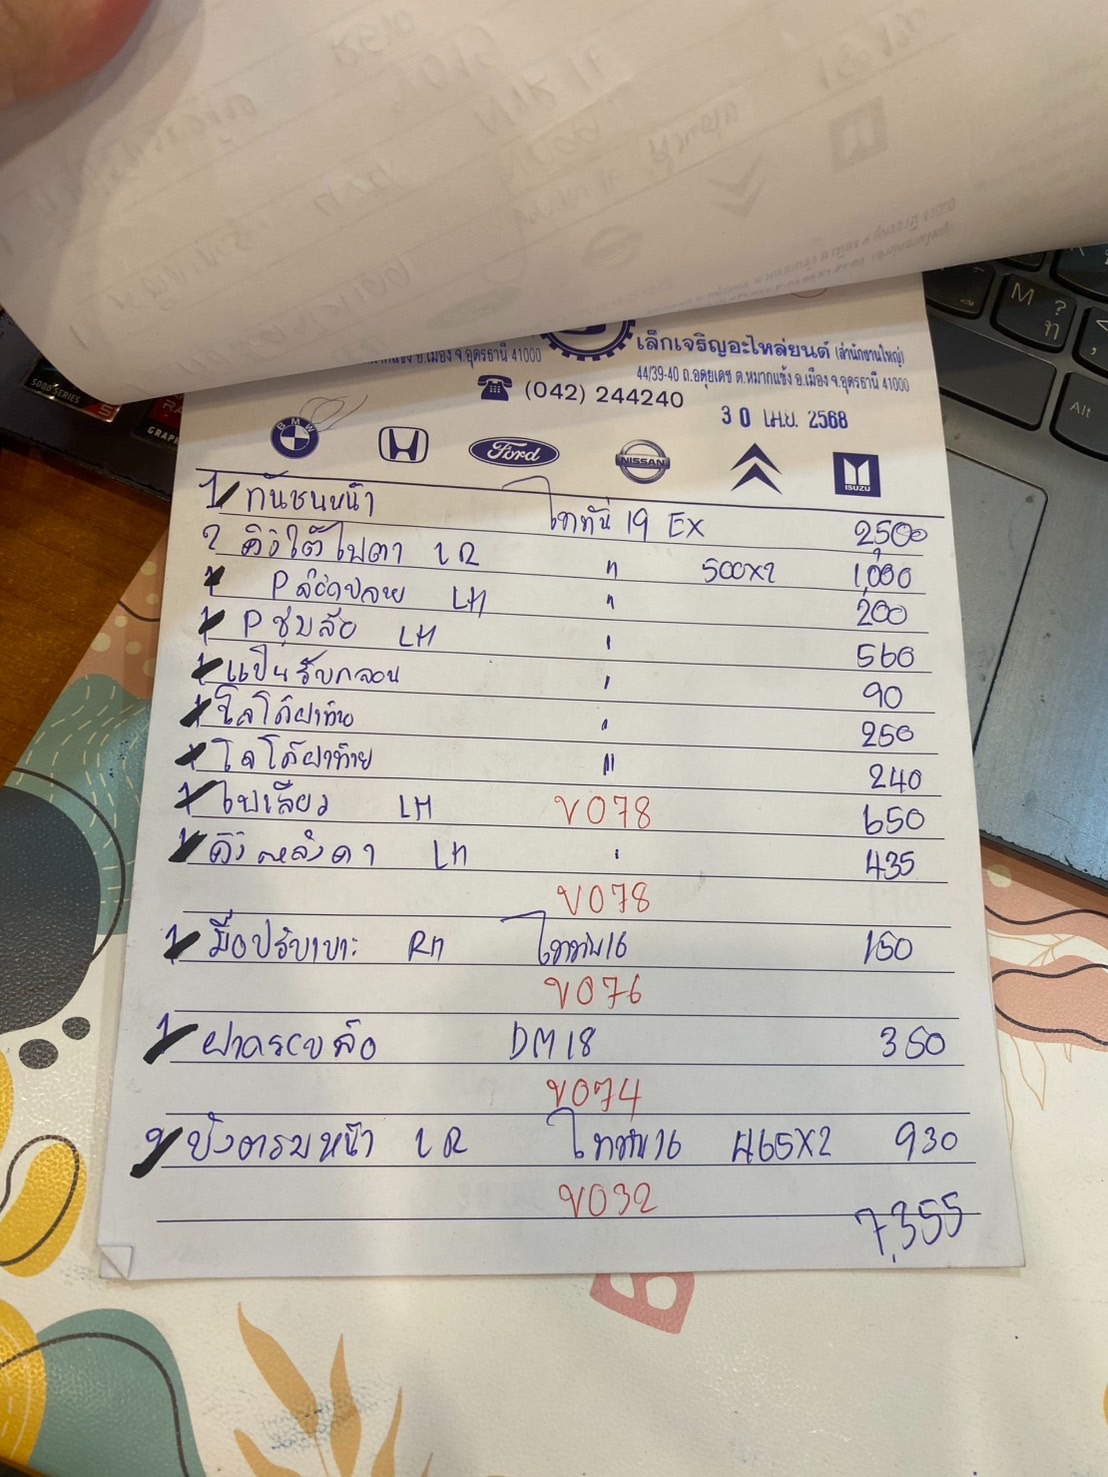 เล็กเจริญอะไหล่ยนต์ (สำนักงานใหญ่)
อ.เมือง จ.อุดรธานี 41000
44/39-40 ถ.อดุยเดช ต.หมากแข้ง อ.เมือง จ.อุดรธานี 41000
(042) 244240
30 เม.ย. 2568
BMW Ford NISSAN ISUZU
1 กันชนหน้า ไททัน 19 EX 2500
2 คิ้วใต้ไฟตา LR " 500x2 1,000
1 P ล้อปลาย LH " 200
1 P ซุ้มล้อ LH " 560
1 แป้นรับกลอน " 90
1 โลโก้ฝาท้าย " 250
1 โลโก้ฝาท้าย " 240
1 ไฟเลี้ยว LH V078 650
1 คิ้วหลังคา LH " 435
V078
1 มือปรับเบาะ RH ไททัน16 150
V076
1 ฝาครอบล้อ DM18 350
V074
2 บังตรมหน้า LR ไททัน16 465x2 930
V032
7,355
M ?
ท
Alt
5000 SERIES